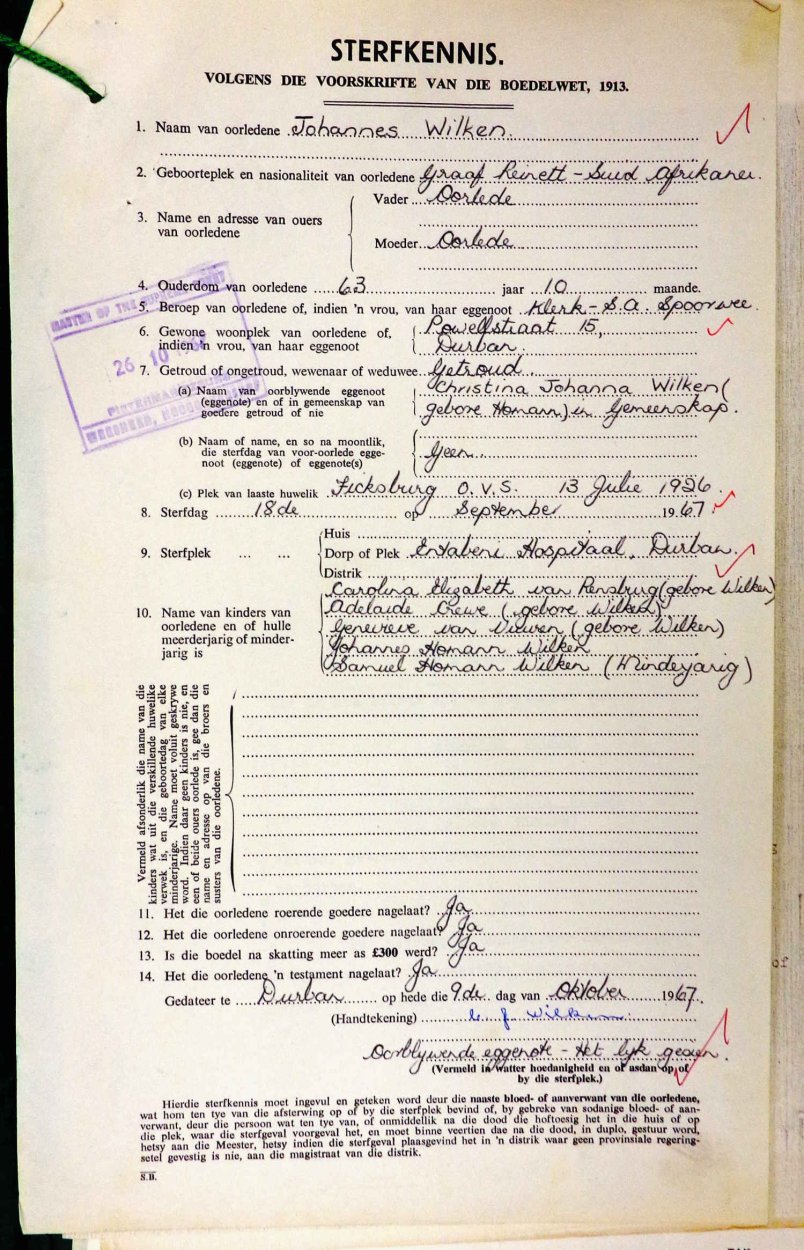 STERFKENNIS.
VOLGENS DIE VOORSKRIFTE VAN DIE BOEDELWET, 1913.
1. Naam van oorledene Johannes Wilken.
2. Geboorteplek en nasionaliteit van oorledene Graaf Reinett - Suid Afrikaner.
3. Name en adresse van ouers van oorledene
Vader Oorlede
Moeder Oorlede
4. Ouderdom van oorledene 63 jaar 10 maande.
5. Beroep van oorledene of, indien 'n vrou, van haar eggenoot Klerk - S.A. Spoorweë
6. Gewone woonplek van oorledene of, indien 'n vrou, van haar eggenoot
Powellstraat 15,
Durban.
7. Getroud of ongetroud, wewenaar of weduwee Getroud.
(a) Naam van oorblywende eggenoot (eggenote) en of in gemeenskap van goedere getroud of nie
Christina Johanna Wilken (
gebore Homann) in Gemeenskap.
(b) Naam of name, en so na moontlik, die sterfdag van voor-oorlede eggenoot (eggenote) of eggenote(s)
Geen.
(c) Plek van laaste huwelik Ficksburg O.V.S. 13 Julie 1926.
8. Sterfdag 18de op September 1967.
9. Sterfplek ... ...
Huis
Dorp of Plek Entabeni Hospitaal, Durban.
Distrik
10. Name van kinders van oorledene en of hulle meerderjarig of minderjarig is
Carolina Elizabeth van Rensburg (gebore Wilken)
Adelaide Crewe (gebore Wilken)
Genevieve van Vuuren (gebore Wilken)
Johannes Homann Wilken
Samuel Homann Wilken (Minderjarig)
Vermeld afsonderlik die name van die
kinders wat uit die verskillende huwelike
verwek is, en die geboortedag van elke
minderjarige. Name moet voluit geskrywe
word. Indien daar geen kinders is nie, en
een of beide ouers oorlede is, gee dan die
name en adresse op van die broers en
susters van die oorledene.
11. Het die oorledene roerende goedere nagelaat? Ja
12. Het die oorledene onroerende goedere nagelaat? Ja
13. Is die boedel na skatting meer as £300 werd? Ja
14. Het die oorledene 'n testament nagelaat? Ja
Gedateer te Durban op hede die 9de dag van Oktober 1967.
(Handtekening) C. J. Wilken
Oorblywende eggenote - Het lyk gesien.
(Vermeld in watter hoedanigheid en of asdan op of
by die sterfplek.)
Hierdie sterfkennis moet ingevul en geteken word deur die naaste bloed- of aanverwant van die oorledene,
wat hom ten tye van die afsterwing op of by die sterfplek bevind of, by gebreke van sodanige bloed- of aan-
verwant, deur die persoon wat ten tye van, of onmiddellik na die dood die hoftoesig het in die huis of op
die plek, waar die sterfgeval voorgeval het, en moet binne veertien dae na die dood, in duplo, gestuur word,
hetsy aan die Meester, hetsy indien die sterfgeval plaasgevind het in 'n distrik waar geen provinsiale regering-
setel gevestig is nie, aan die magistraat van die distrik.
S.B.
MASTER OF THE SUPREME COURT
26 10
PIETERMARITZBURG